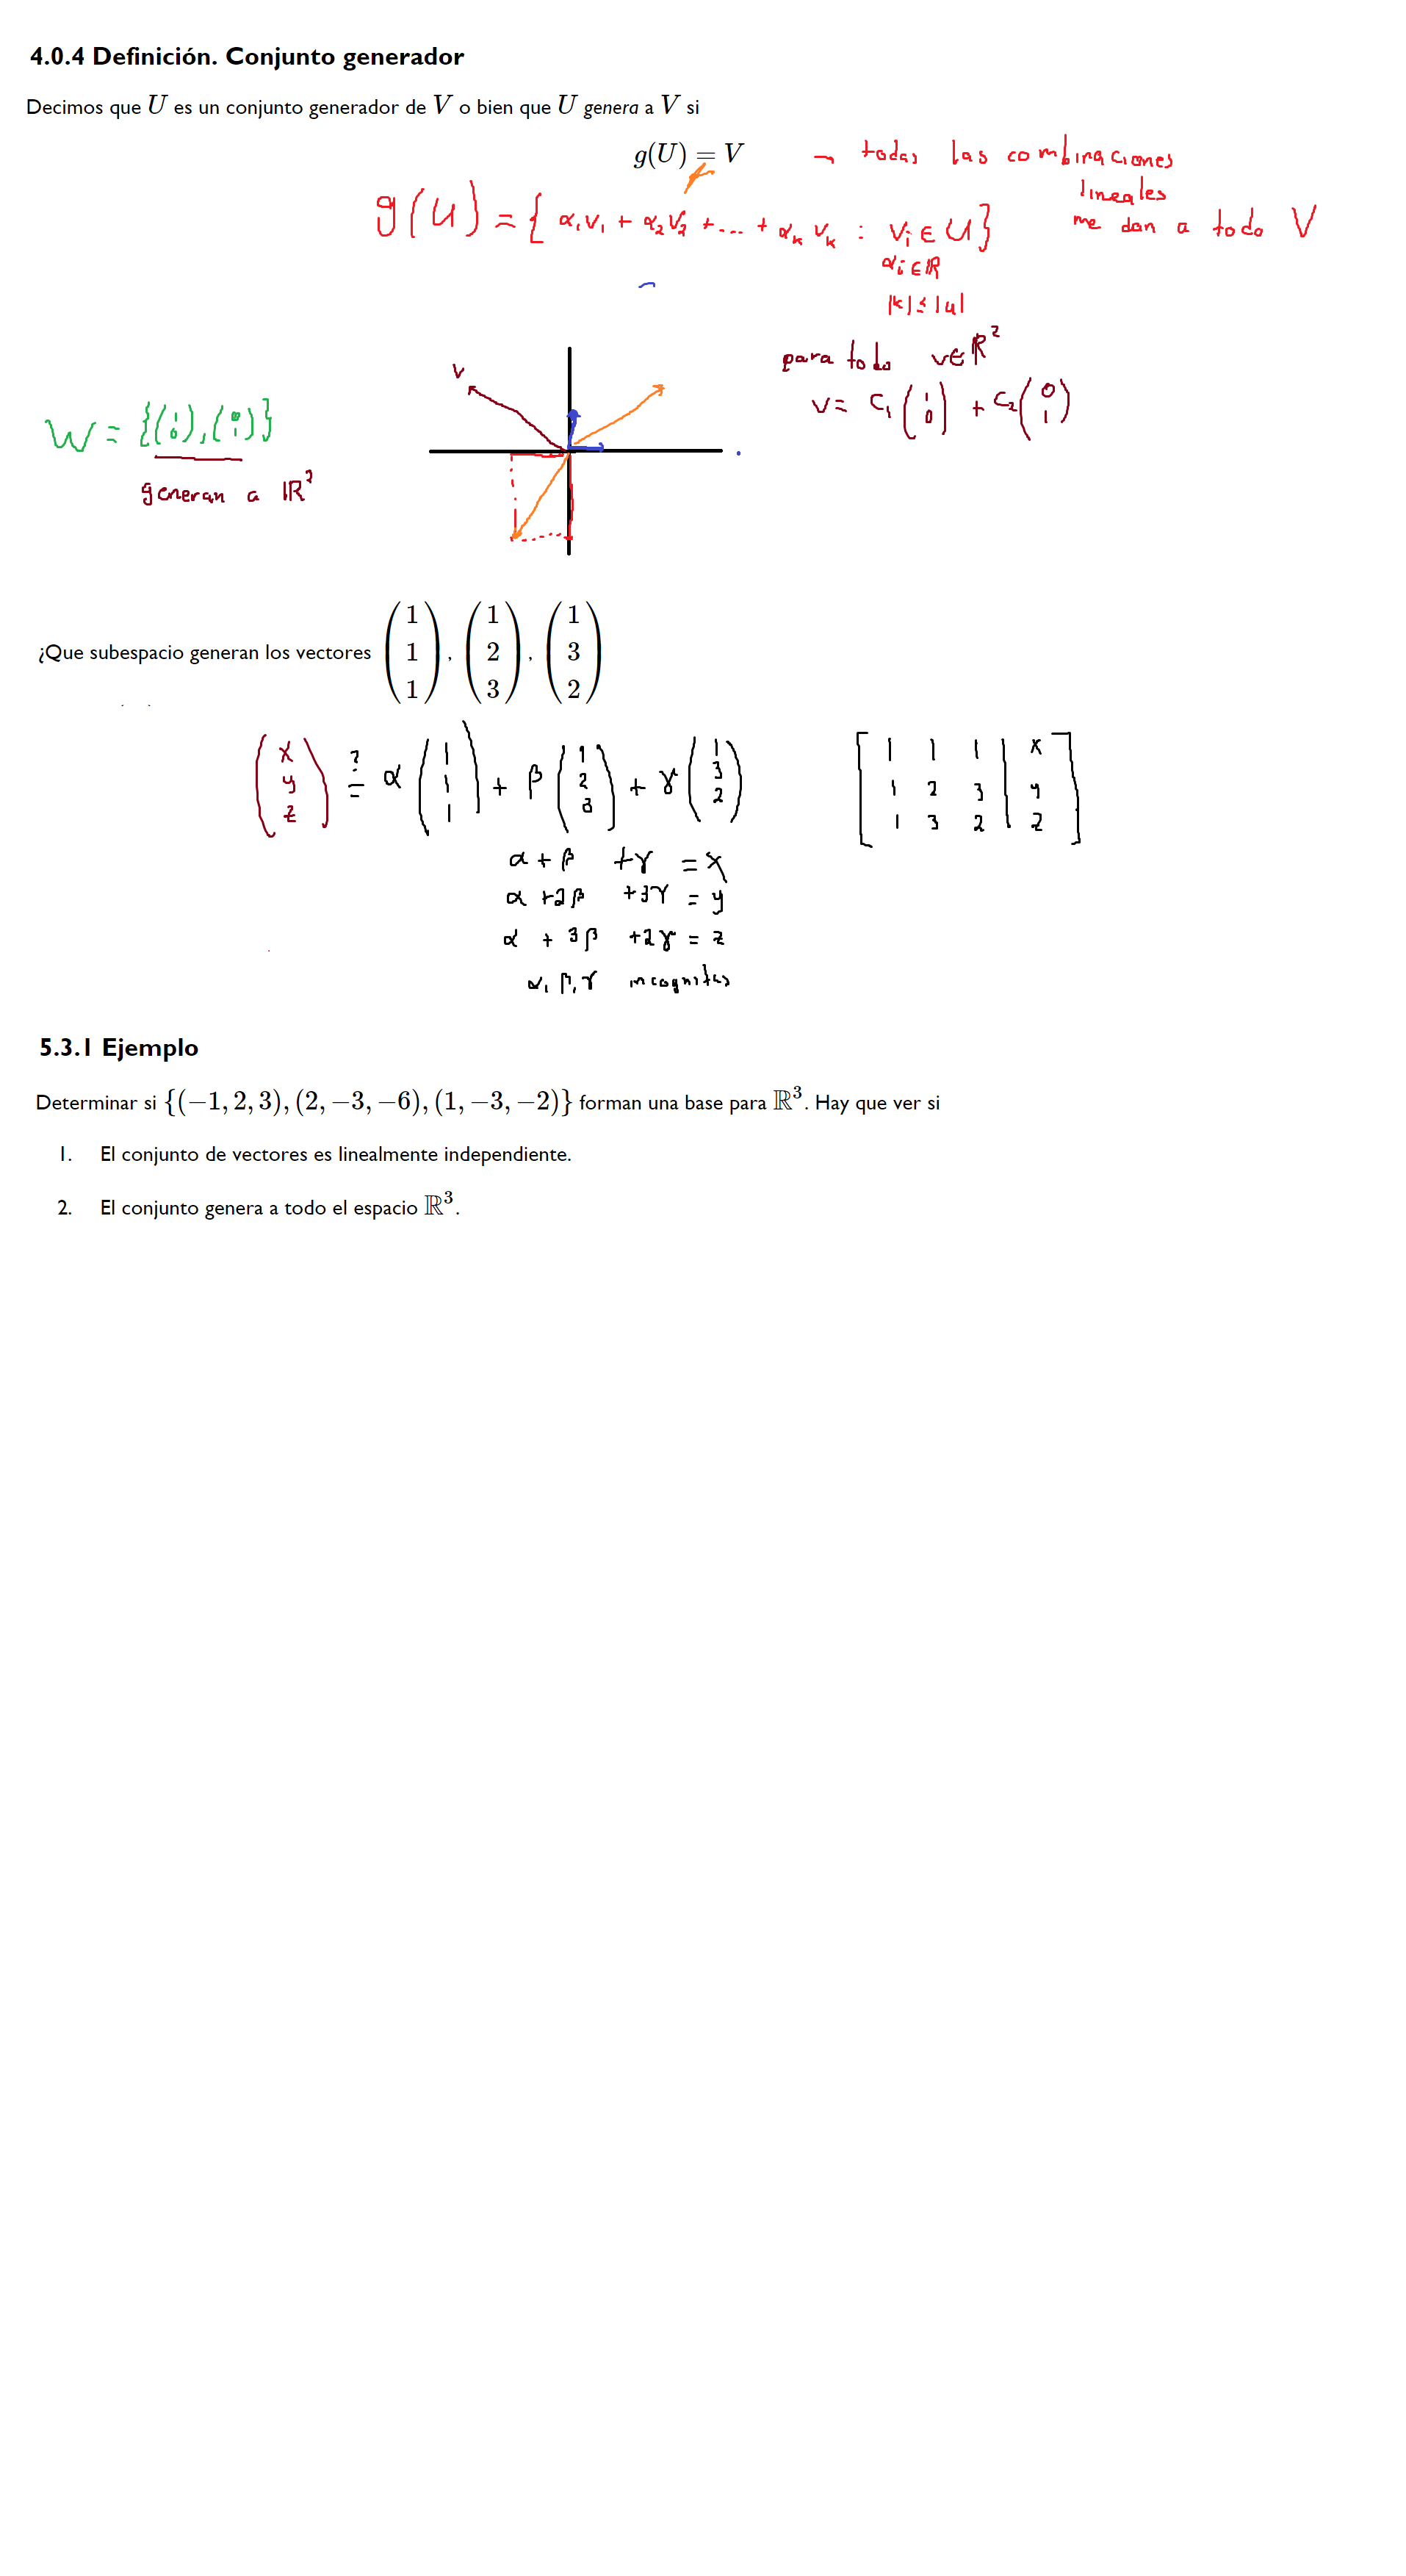 4.0.4 Definición. Conjunto generador
Decimos que U es un conjunto generador de V o bien que U genera a V si
g(U) = V → todas las combinaciones
lineales
me dan a todo V
g(U) = { α₁v₁ + α₂v₂ + ... + αₖ vₖ : vᵢ ∈ U}
αᵢ ∈ ℝ
|k| ≤ |u|
para todo v∈ℝ²
v = c₁ (1 0) + c₂ (0 1)
v
W = {(1 0), (0 1)}
generan a ℝ²
¿Que subespacio generan los vectores (1 1 1), (1 2 3), (1 3 2)
(x y z) ?= α (1 1 1) + β (1 2 3) + γ (1 3 2)
[1 1 1 | x
1 2 3 | y
1 3 2 | z]
α + β + γ = x
α + 2β + 3γ = y
α + 3β + 2γ = z
α, β, γ incognitas
5.3.1 Ejemplo
Determinar si {(−1, 2, 3), (2, −3, −6), (1, −3, −2)} forman una base para ℝ³. Hay que ver si
1. El conjunto de vectores es linealmente independiente.
2. El conjunto genera a todo el espacio ℝ³.